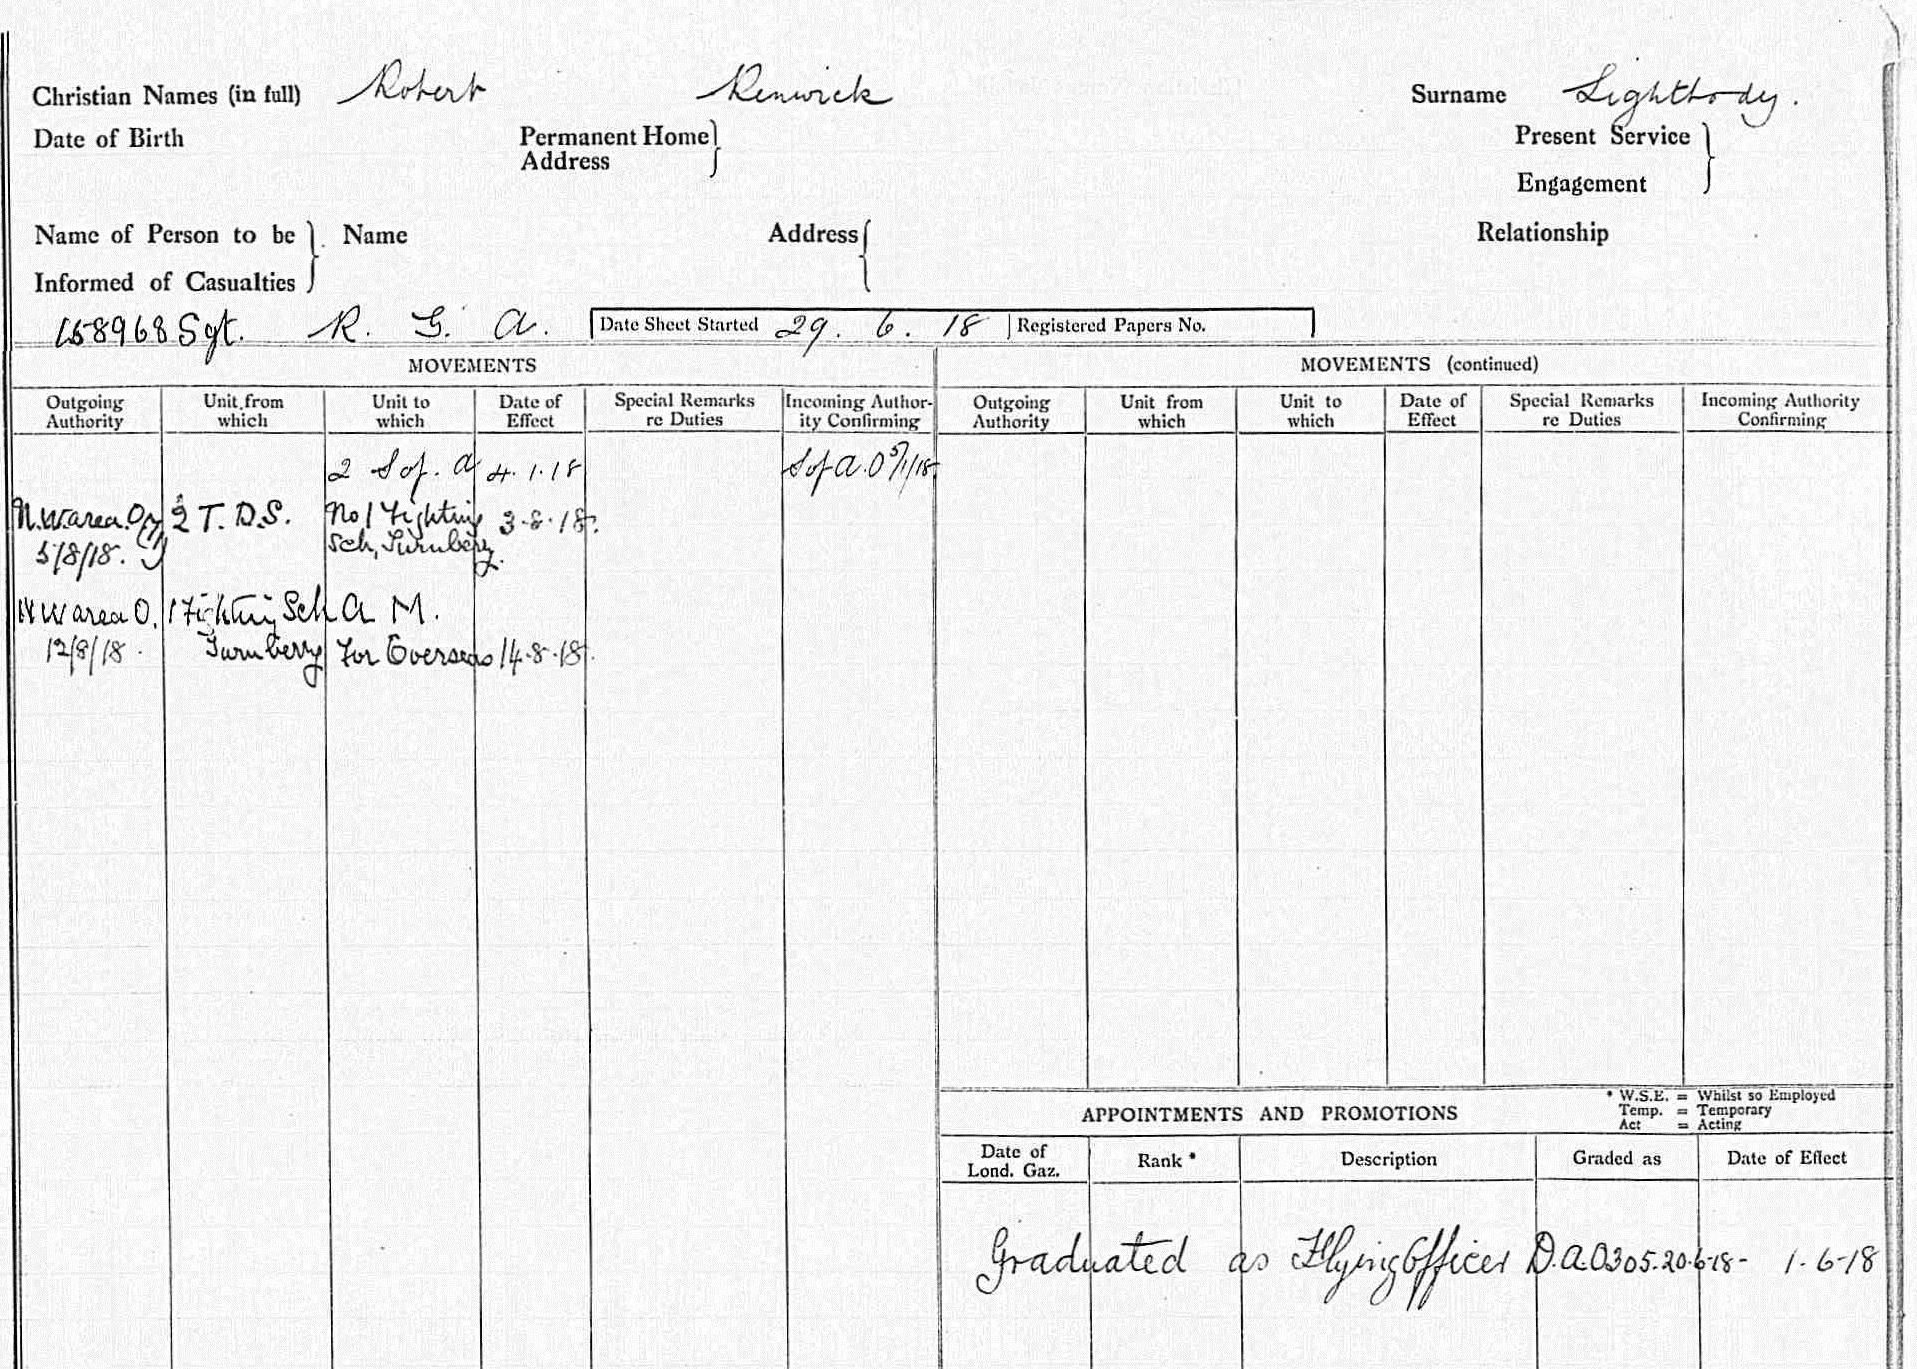 Christian Names (in full) Robert Renwick Surname Lightbody.
Date of Birth Permanent Home Address Present Service Engagement
Name of Person to be Informed of Casualties Name Address Relationship
158968 Sgt. R. G. A. Date Sheet Started 29. 6. 18 Registered Papers No.
MOVEMENTS MOVEMENTS (continued)
Outgoing Authority Unit from which Unit to which Date of Effect Special Remarks re Duties Incoming Author-ity Confirming Outgoing Authority Unit from which Unit to which Date of Effect Special Remarks re Duties Incoming Authority Confirming
2 S of. A 4.1.18 S of A.O 5/1/18
N.W. area. O 2 T.D.S. No 1 Fighting 3-8-18.
5/8/18. Sch, Turnberry.
N W area O. 1 Fighting Sch A M.
12/8/18. Turnberry For Overseas 14-8-18.
APPOINTMENTS AND PROMOTIONS
* W.S.E. = Whilst so Employed
Temp. = Temporary
Act = Acting
Date of Lond. Gaz. Rank * Description Graded as Date of Effect
Graduated as Flying Officer D.A.O 305. 20-6-18 - 1-6-18